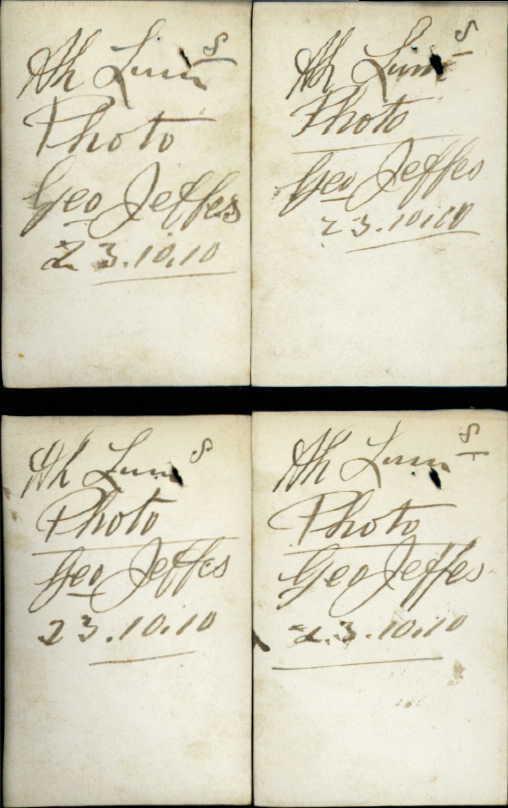 8
Ah Lum
Photo
Geo Jeffes
23.10.10
8
Ah Lum
Photo
Geo Jeffes
23.10.10
8
Ah Lum
Photo
Geo Jeffes
23.10.10
8
Ah Lum
Photo
Geo Jeffes
23.10.10